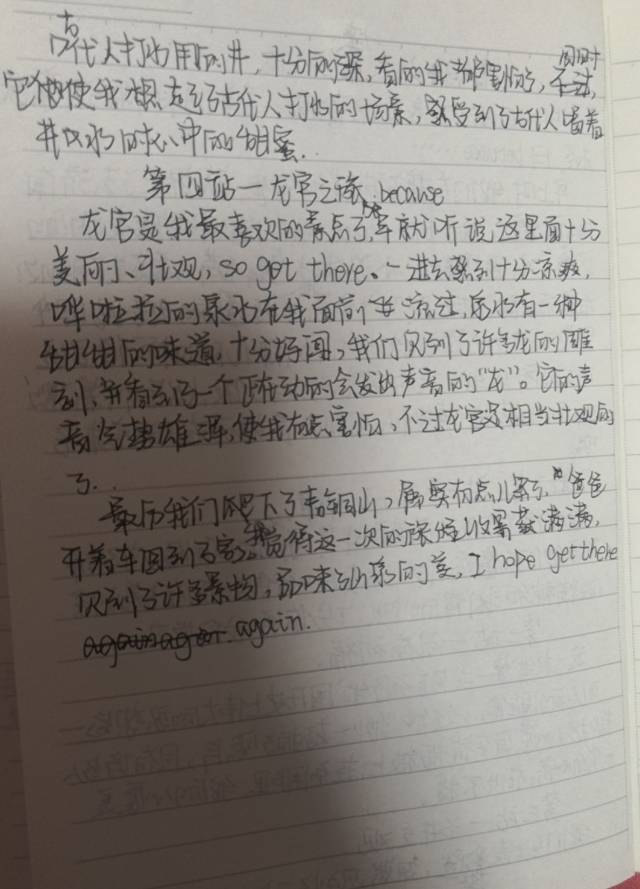 古代人打水用的井,十分的深,看的我都害怕了,同时不过,
它也使我想起了古代人打水的场景,感受到了古代人喝着
井水时心中的甜蜜..
第四站一龙宫之旅.because
龙宫是我最喜欢的景点了,早就听说这里面十分
美丽、壮观,so got there。一进去感到十分凉爽,
哗啦啦的泉水在我面前流过,泉水有一种
甜甜的味道,十分好闻,我们见到了许多龙的雕
刻,并看到了一个正在动的会发出声音的“龙”。它的声
音气势雄浑,使我有点害怕,不过龙宫是相当壮观的
了..
最后我们爬下了青铜山,属实有点儿累了,爸爸
开着车回到了家,我觉得这一次的旅途收获满满,
见到了许多景物,品味了山泉的美,I hope get there
again.